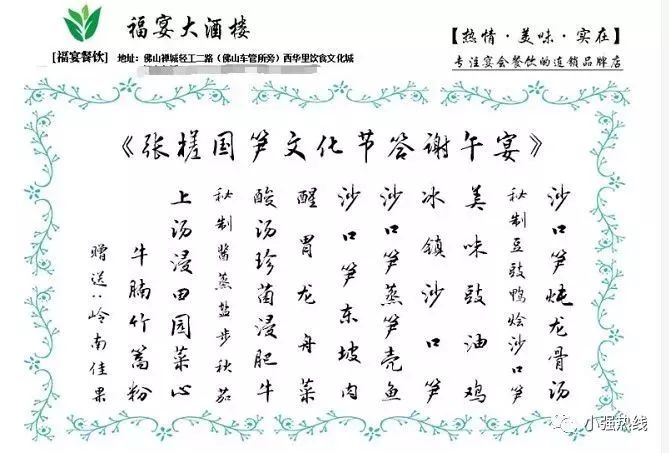 福宴大酒楼
【热情·美味·实在】
[福宴餐饮]
地址：佛山禅城轻工二路（佛山车管所旁）西华里饮食文化城
专注宴会餐饮的连锁品牌店
《张槎国笋文化节答谢午宴》
沙口笋炖龙骨汤
秘制豆豉鸭烩沙口笋
美味豉油鸡
冰镇沙口笋
沙口笋蒸笋壳鱼
沙口笋东坡肉
醒胃龙舟菜
酸汤珍菌浸肥牛
秘制酱蒸盐步秋茄
上汤浸田园菜心
牛腩竹篙粉
赠送：岭南佳果
小强热线